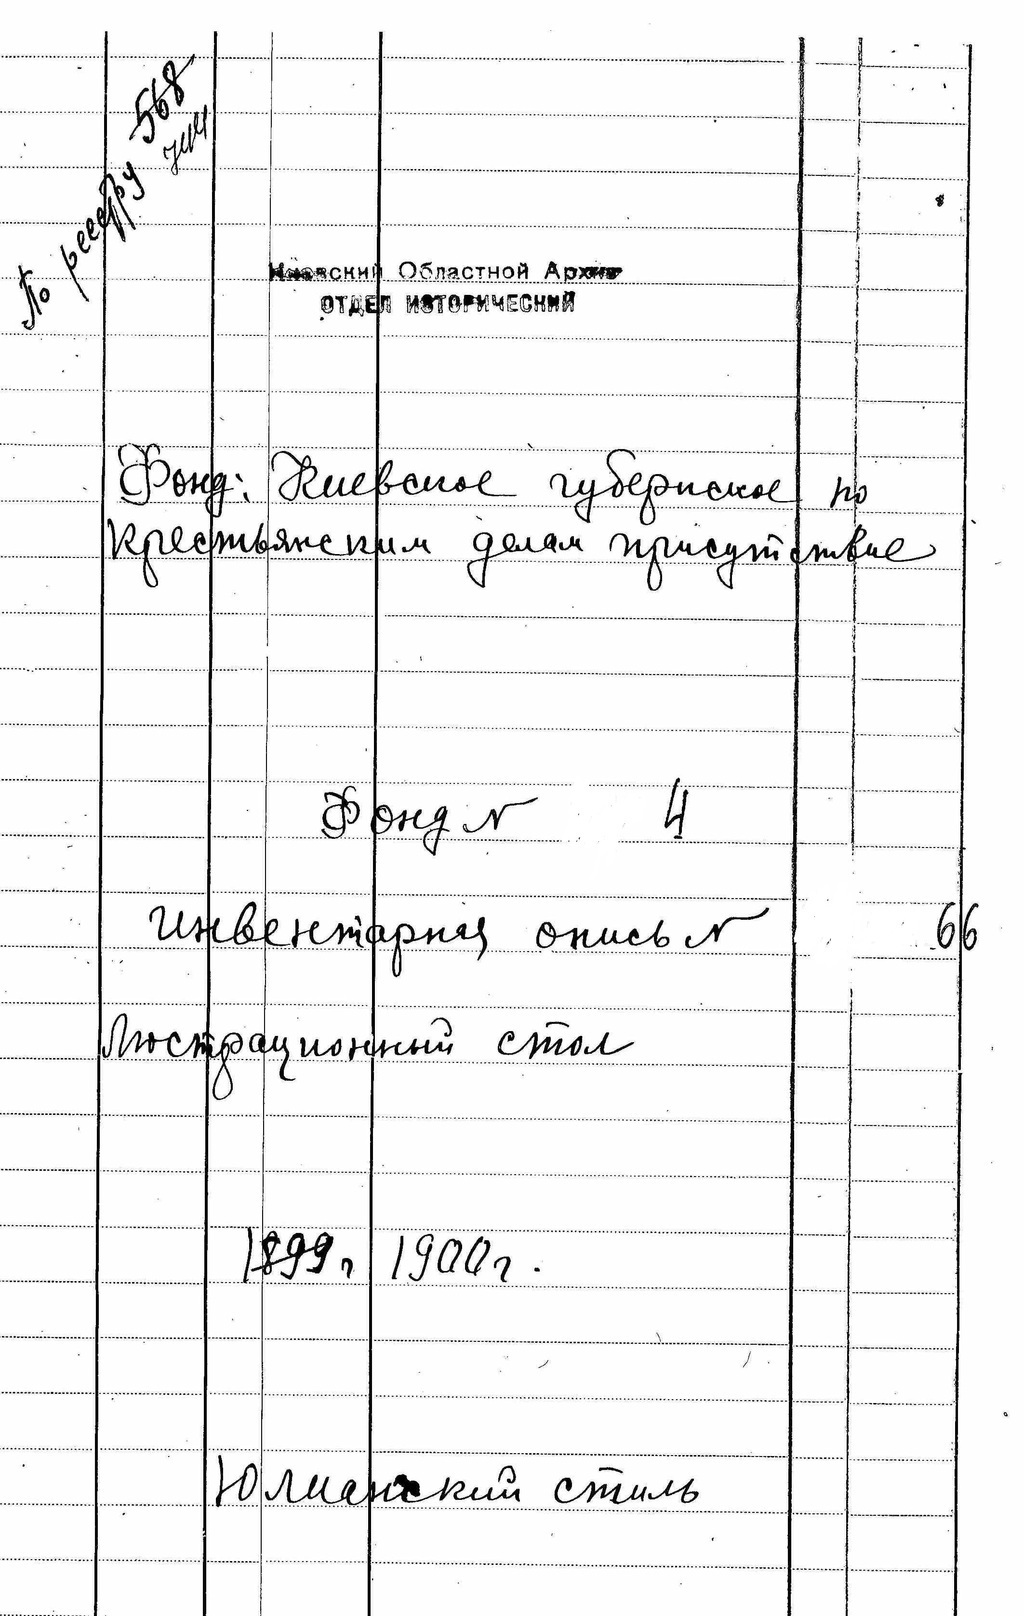 По реестру 568
Киевский Областной Архив
ОТДЕЛ ИСТОРИЧЕСКИЙ
Фонд: Киевское губернское по
крестьянским делам присутствие
Фонд N 4
Инвентарная опись N 66
Люстрационный стол
1899г 1900г.
Юлианский стиль